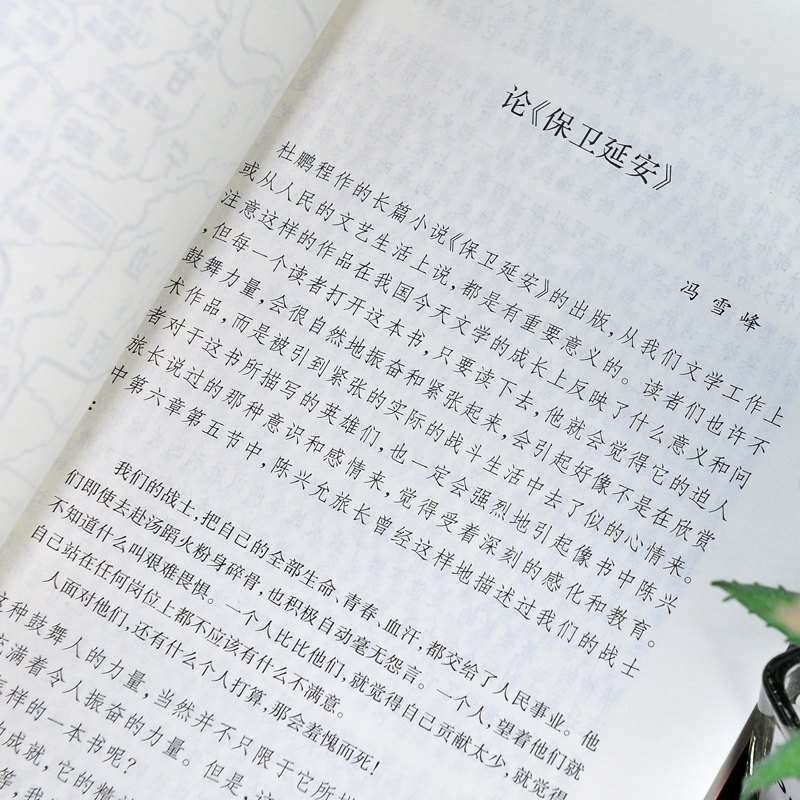 论《保卫延安》
冯雪峰
杜鹏程作的长篇小说《保卫延安》的出版，从我们文学工作上
或从人民的文艺生活上说，都是有重要意义的。读者们也许不
注意这样的作品在我国今天文学的成长上反映了什么意义和问
，但每一个读者打开这本书，只要读下去，他就会觉得它的迫人
鼓舞力量，会很自然地振奋和紧张起来，会引起好像不是在欣赏
术作品，而是被引到紧张的实际的战斗生活中去了似的心情来。
者对于这书所描写的英雄们，也一定会强烈地引起像书中陈兴
旅长说过的那种意识和感情来，觉得受着深刻的感化和教育。
中第六章第五节中，陈兴允旅长曾经这样地描述过我们的战士
：
我们的战士，把自己的全部生命、青春、血汗，都交给了人民事业。他
们即使去赴汤蹈火粉身碎骨，也积极自动毫无怨言。一个人，望着他们就
不知道什么叫艰难畏惧。一个人比比他们，就觉得自己贡献太少，就觉得
自己站在任何岗位上都不应该有什么不满意。
人面对他们，还有什么个人打算，那会羞愧而死！
这种鼓舞人的力量，当然并不只限于它所
充满着令人振奋的力量。但是，这
怎样的一本书呢？
的成就，它的精
等，我